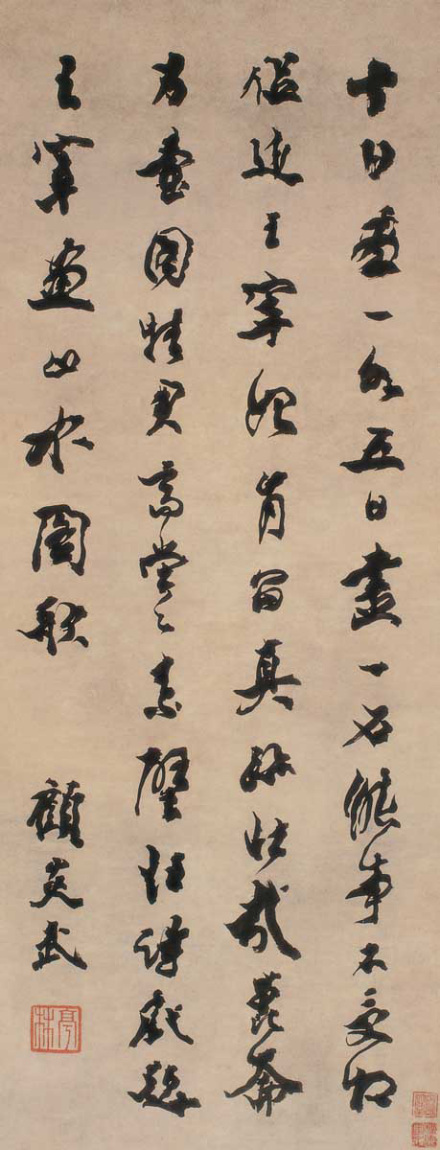 十日畫一水五日畫一石能事不受相
促迫王宰始肯留真跡壯哉崑崙
方壺圖挂君高堂之素壁杜詩戲題
王宰畫山水圖歌
顧炎武
亭林